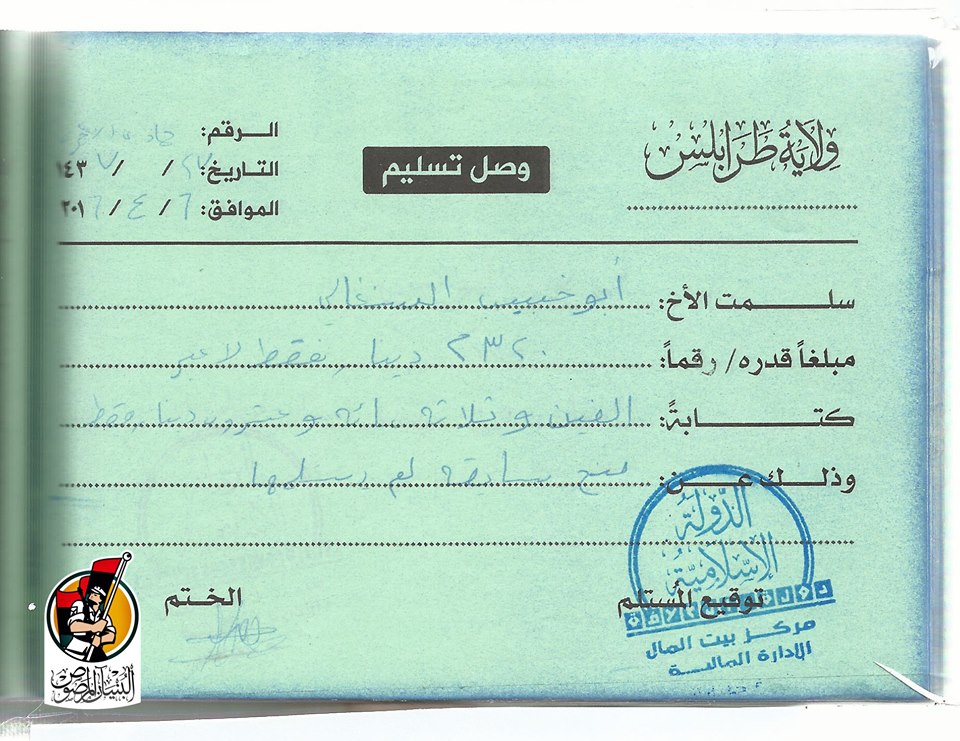 ولاية طرابلس
وصل تسليم
الرقم:
التاريخ: ٢٧ / ٧ / ١٤٣
الموافق: ٦ / ٤ / ٢٠١٦
سلمت الأخ: أبو خبيب السنغالي
مبلغاً قدره/ رقماً: ٢٣٢٠ دينار فقط لا غير
كتابةً: الفين و ثلاثة مائه و عشرون دينار فقط
وذلك عن: سابقه لم يستلمها
الدولة
الإسلامية
توقيع المستلم
الختم
مركز بيت المال
الإدارة المالية
البنيان المرصوص